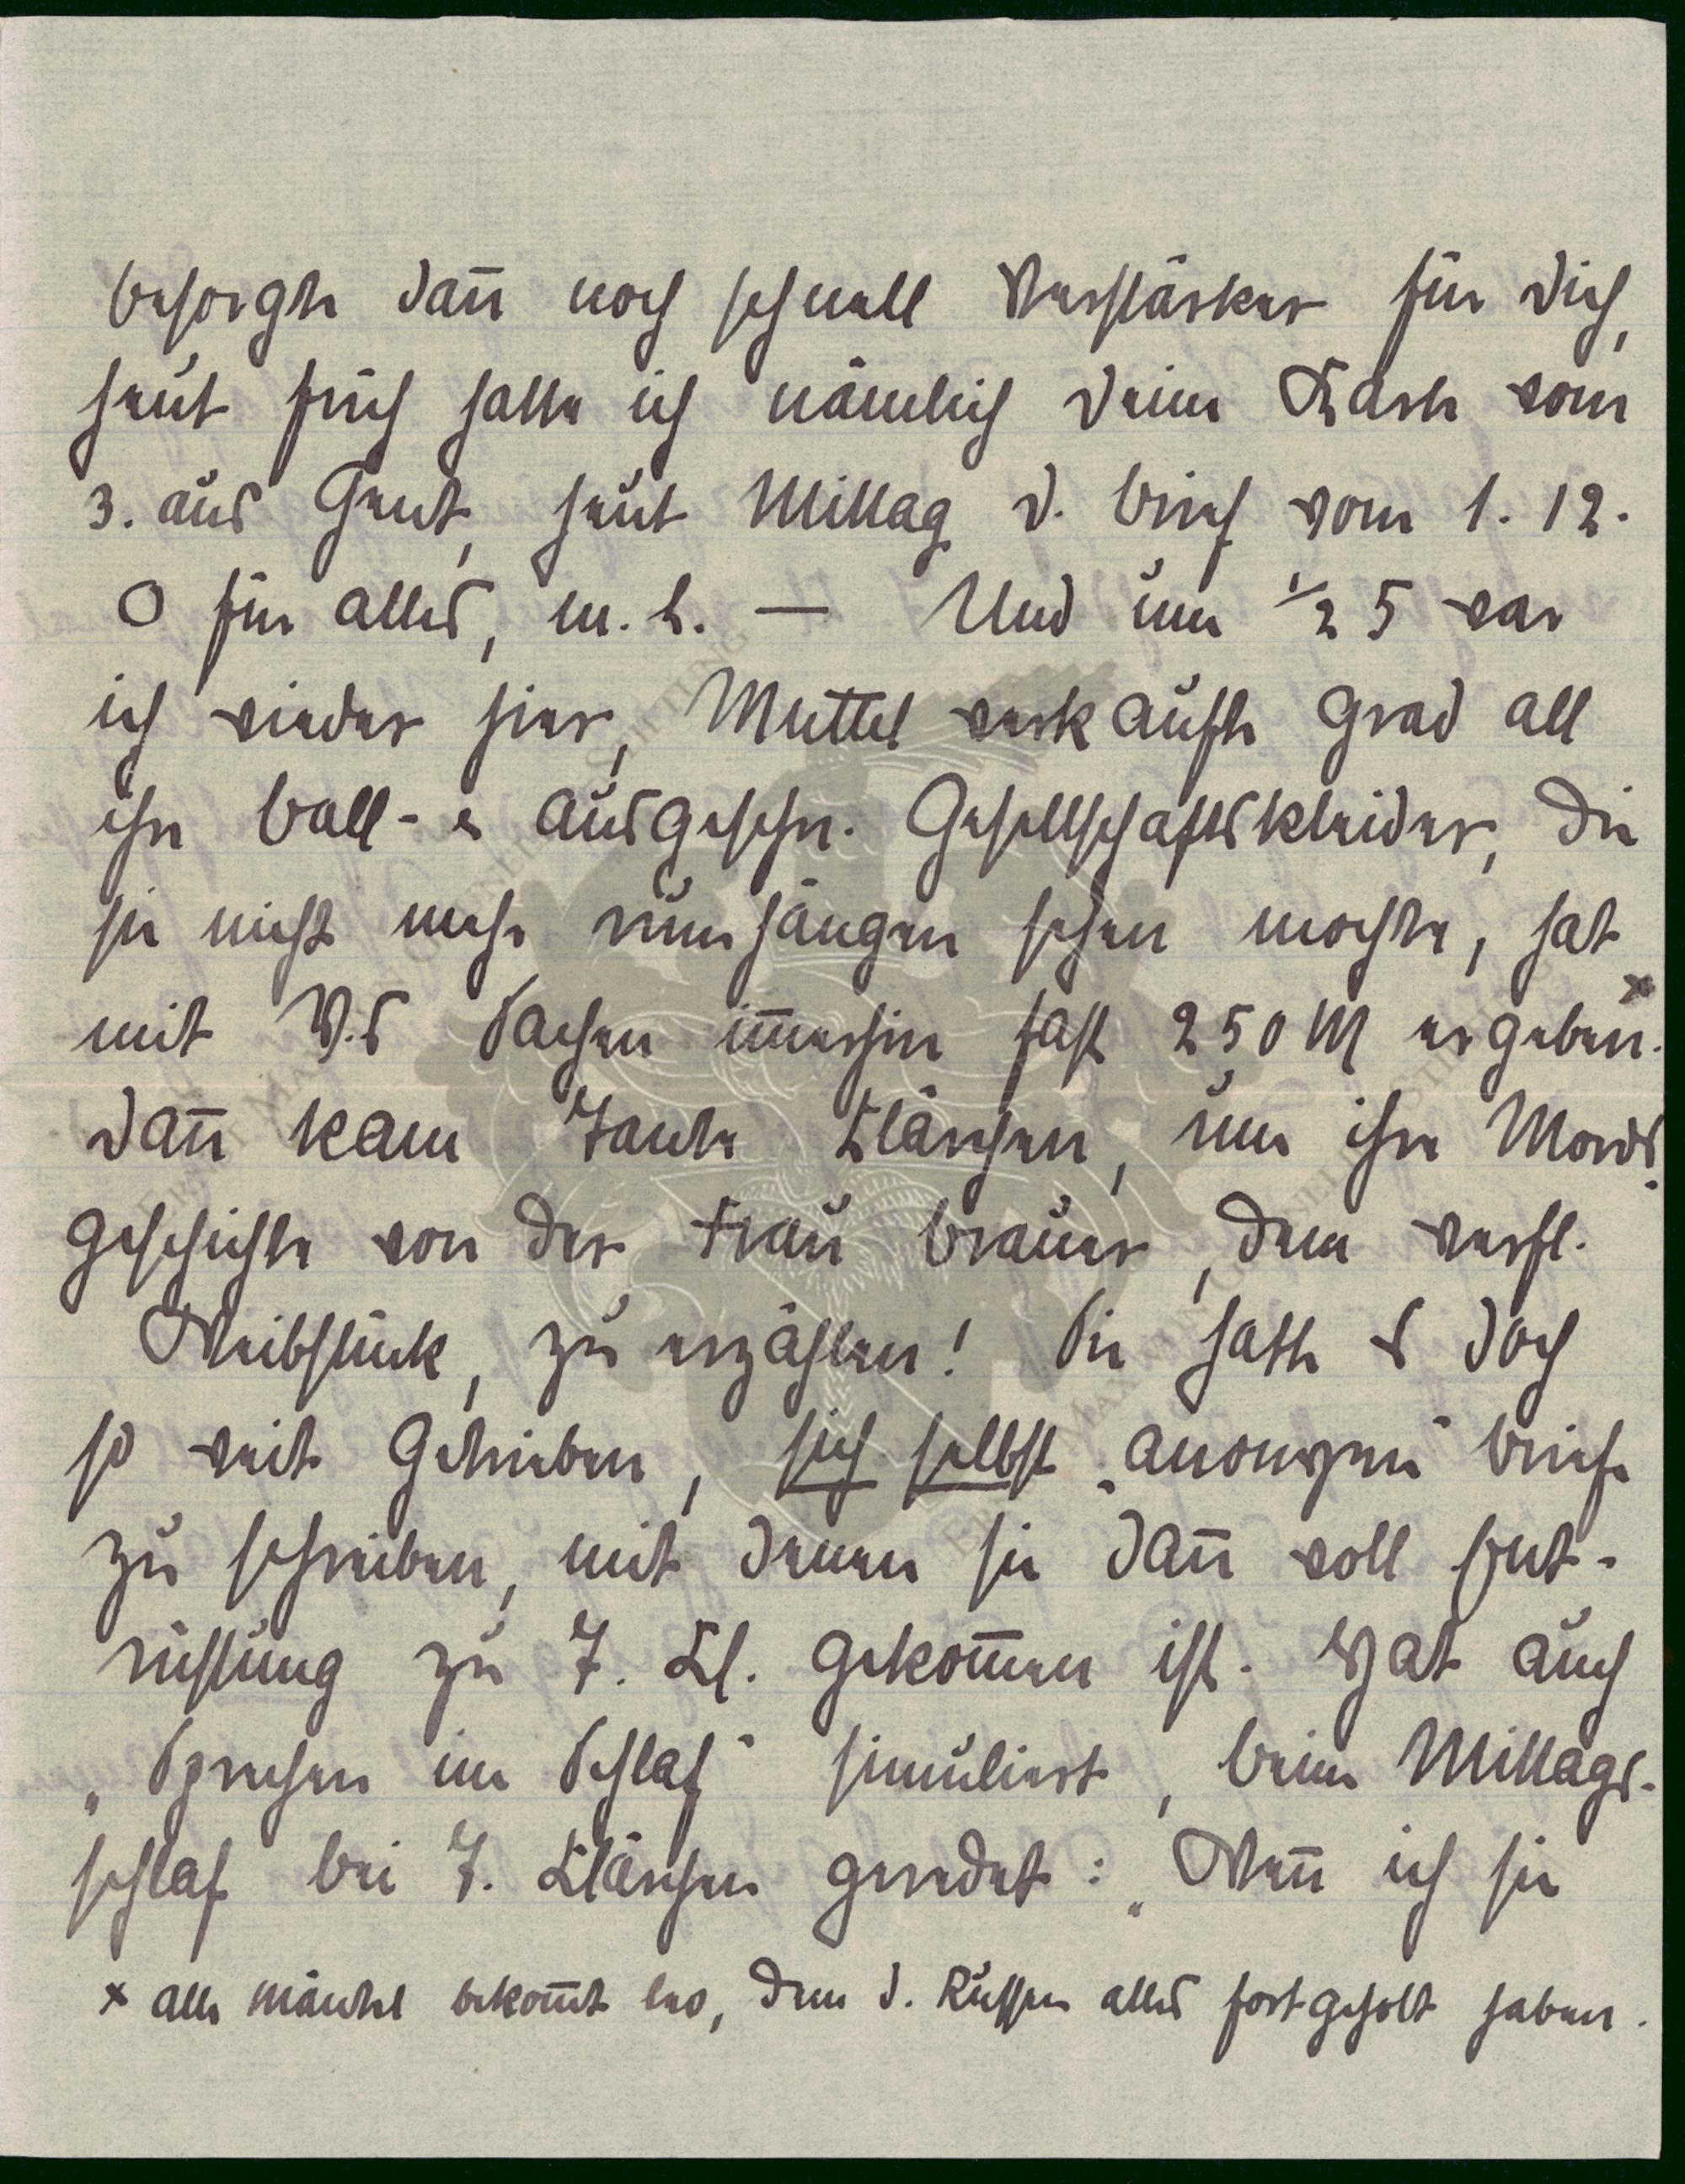 besorgte dañ noch schnell Verstärker für Dich,
heut früh hatte ich nämlich Deine Karte vom
3. aus Gent, heut Mittag D. Brief vom 1. 12.
O für alles, m. L. — Und um 1/2 5 war
ich wieder hier, Muttel verkaufte grad all
ihre Ball- & ausgeschn. Gesellschaftskleider, die
sie nicht mehr rumhängen sehen mochte, hat
mit V.s Sachen im̄erhin fast 250 M ergeben. x
Dañ kam Tante Klärchen, um ihre Mords-
geschichte von der Frau Brauer, dem verfl.
Weibstück, zu erzählen! Sie hatte es doch
so weit getrieben, sich selbst „anonyme" Briefe
zu schreiben, mit denen sie dañ voll Ent-
rüstung zu T. Kl. gekom̄en ist. Hat auch
„Sprechen im Schlaf" simuliert, beim Mittags-
schlaf bei T. Klärchen geredet: „Weñ ich sie
x alle Mäntel bekom̄t Leo, dem d. Russen alles fortgeholt haben.